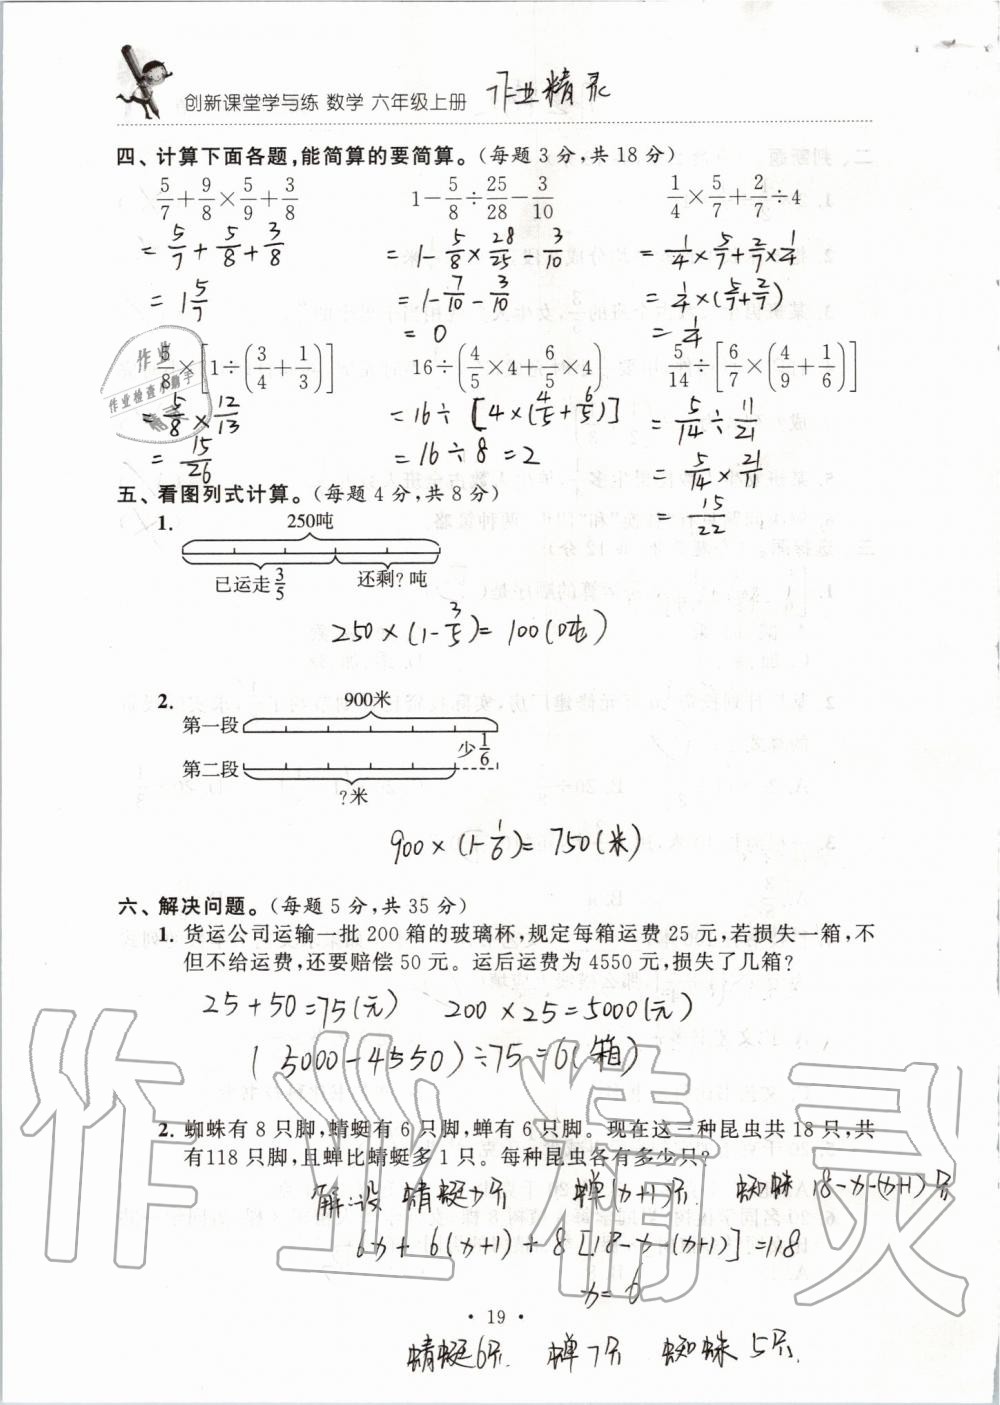 创新课堂学与练 数学 六年级上册 作业精灵
四、计算下面各题,能简算的要简算。(每题3分,共18分)
5/7+9/8×5/9+3/8 1-5/8÷25/28-3/10 1/4×5/7+2/7÷4
=5/7+5/8+3/8 =1-5/8×28/25-3/10 =1/4×5/7+2/7×1/4
=1 5/7 =1-7/10-3/10 =1/4×(5/7+2/7)
=0 =1/4
5/8×[1÷(3/4+1/3)] 16÷(4/5×4+6/5×4) 5/14÷[6/7×(4/9+1/6)]
=5/8×12/13 =16÷[4×(4/5+6/5)] =5/14÷11/21
=15/26 =16÷8=2 =5/14×21/11
=15/22
作业
作业检查小助手
精灵
五、看图列式计算。(每题4分,共8分)
1. 250吨
已运走3/5 还剩?吨
250×(1-3/5)=100(吨)
2. 900米
第一段
少1/6
第二段
?米
900×(1-1/6)=750(米)
六、解决问题。(每题5分,共35分)
1. 货运公司运输一批200箱的玻璃杯,规定每箱运费25元,若损失一箱,不
但不给运费,还要赔偿50元。运后运费为4550元,损失了几箱?
25+50=75(元) 200×25=5000(元)
(5000-4550)÷75=6(箱)
作业精灵
2. 蜘蛛有8只脚,蜻蜓有6只脚,蝉有6只脚。现在这三种昆虫共18只,共
有118只脚,且蝉比蜻蜓多1只。每种昆虫各有多少只?
解:设 蜻蜓x只 蝉(x+1)只 蜘蛛18-x-(x+1)只
6x+6(x+1)+8[18-x-(x+1)]=118
x=6
• 19 •
蜻蜓6只. 蝉7只 蜘蛛5只.